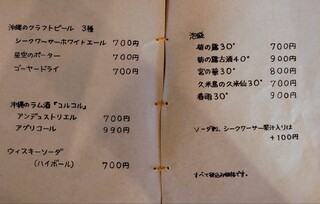 沖縄のクラフトビール 3種
シークワーサーホワイトエール 700円
星空のポーター 700円
ゴーヤードライ 700円
沖縄のラム酒「コルコル」
アンデュストリエル 700円
アグリコール 990円
ウィスキーソーダ
(ハイボール) 700円
泡盛
菊の露30° 700円
菊の露古酒40° 900円
宮の華30° 800円
久米島の久米仙30° 700円
春雨30° 900円
ソーダ割、シークワーサー果汁入りは
+100円
すべて税込み価格です。